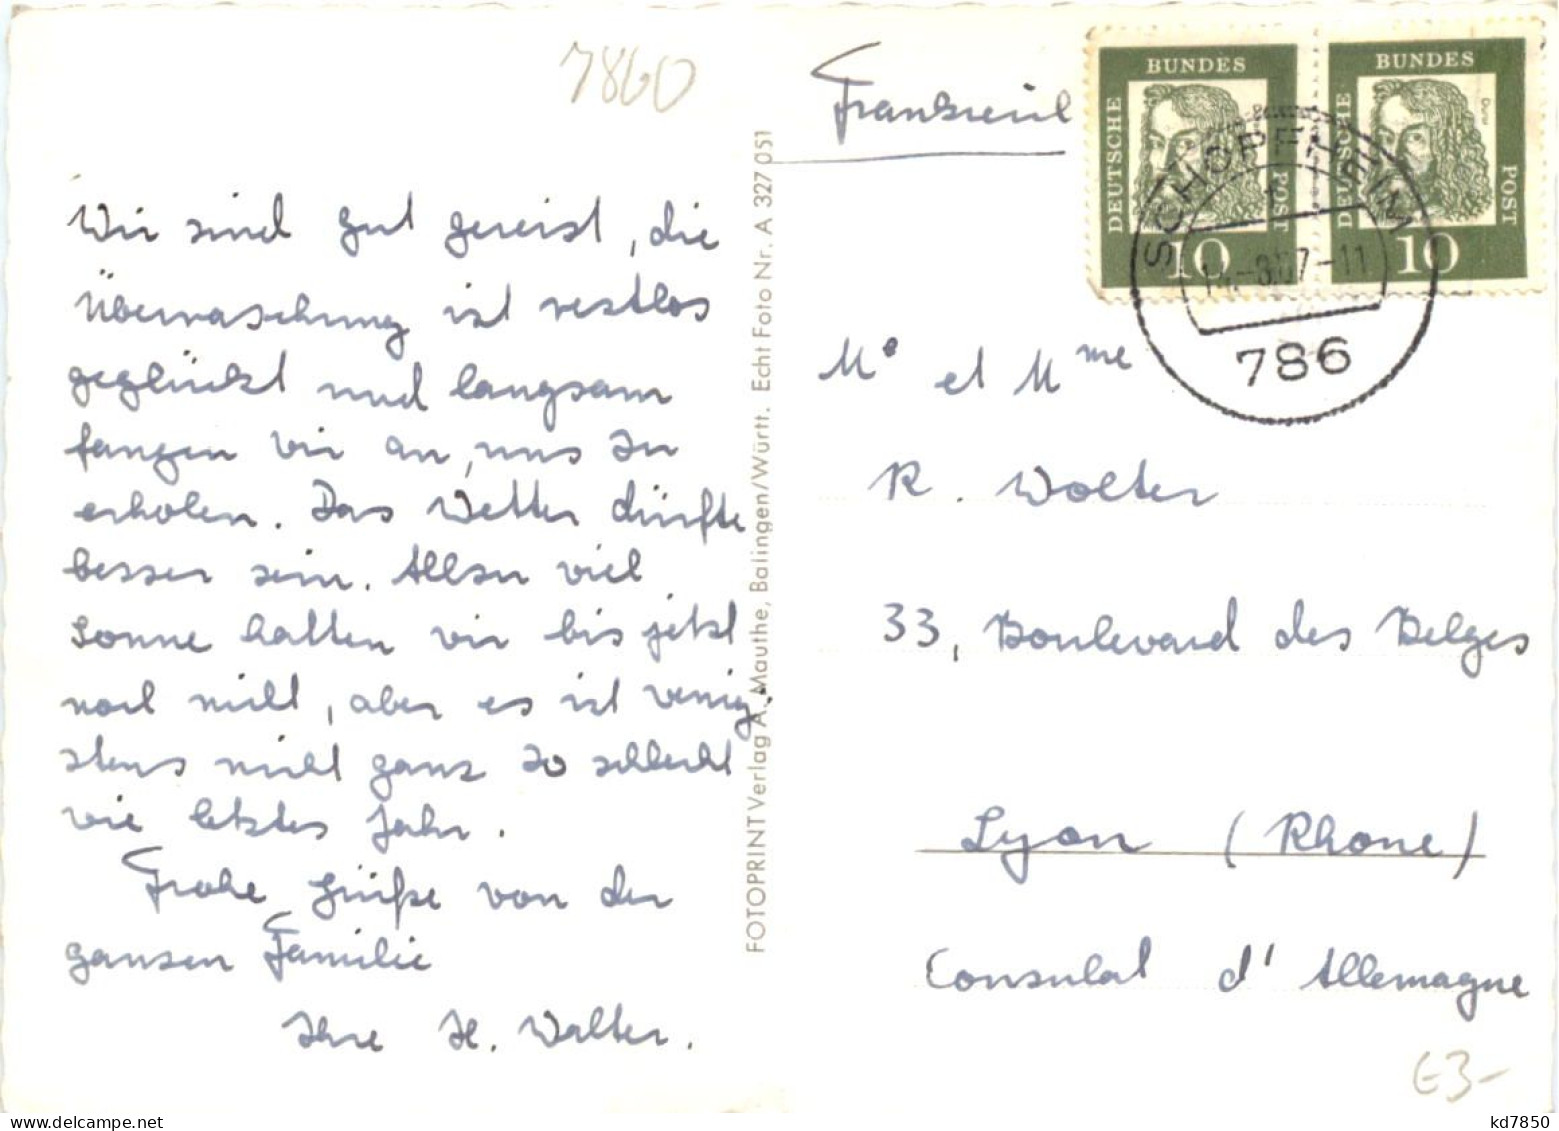 7860
Frankreich
Wir sind gut gereist, die
Überraschung ist restlos
geglückt und langsam
fangen wir an, uns zu
erholen. Das Wetter dürfte
besser sein. Allzu viel
Sonne hatten wir bis jetzt
noch nicht, aber es ist wenig-
stens nicht ganz so schlecht
wie letztes Jahr.
Frohe Grüße von der
ganzen Familie
Ihre H. Walter.
FOTOPRINT Verlag A. Mauthe, Balingen/Württ. Echt Foto Nr. A 327 051
DEUTSCHE BUNDES POST 10
DEUTSCHE BUNDES POST 10
Dürer
SCHOPFHEIM
-8.67-11
786
Mr et Mme
R. Wolter
33, Boulevard des Belges
Lyon (Rhone)
Consulat d'Allemagne
€3-
kd7850